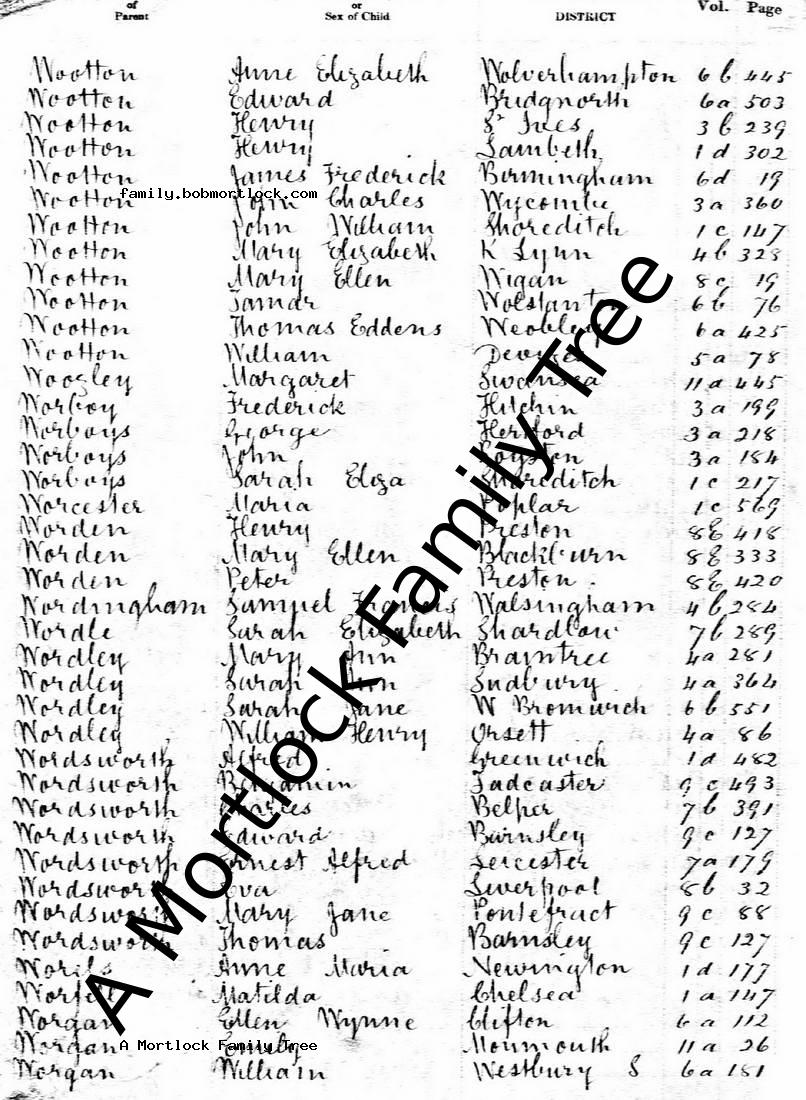 of Parent or Sex of Child DISTRICT Vol. Page
Wootton Anne Elizabeth Wolverhampton 6b 445
Wootton Edward Bridgnorth 6a 503
Wootton Henry St Ives 3b 239
Wootton Henry Lambeth 1d 302
Wootton James Frederick Birmingham 6d 19
family.bobmortlock.com
Wootton John Charles Wycombe 3a 360
Wootton John William Shoreditch 1c 147
Wootton Mary Elizabeth K Lynn 4b 328
Wootton Mary Ellen Wigan 8c 19
Wootton Tamar Wolstanton 6b 76
Wootton Thomas Eddens Weobley 6a 425
Wootton William Devizes 5a 78
Woozley Margaret Swansea 11a 445
Worboy Frederick Hitchin 3a 199
Worboys George Hertford 3a 218
Worboys John Royston 3a 184
Worboys Sarah Eliza Shoreditch 1c 217
Worcester Maria Poplar 1c 569
Worden Henry Preston 8E 418
Worden Mary Ellen Blackburn 8E 333
Worden Peter Preston 8E 420
Wordingham Samuel Francis Walsingham 4b 284
Wordle Sarah Elizabeth Shardlow 7b 289
Wordley Mary Ann Braintree 4a 281
Wordley Sarah Ann Sudbury 4a 364
Wordley Sarah Jane W Bromwich 6b 551
Wordley William Henry Orsett 4a 86
Wordsworth Alfred Greenwich 1d 482
Wordsworth Benjamin Tadcaster 9c 493
Wordsworth Charles Belper 7b 391
Wordsworth Edward Barnsley 9c 127
Wordsworth Ernest Alfred Leicester 7a 179
Wordsworth Eva Liverpool 8b 32
Wordsworth Mary Jane Pontefract 9c 88
Wordsworth Thomas Barnsley 9c 127
Anne Maria Newington 1d 177
Matilda Chelsea 1a 147
Worgan Ellen Wynne Clifton 6a 112
Worgan Emily Monmouth 11a 26
A Mortlock Family Tree
Worgan William Westbury S 6a 181
A Mortlock Family Tree